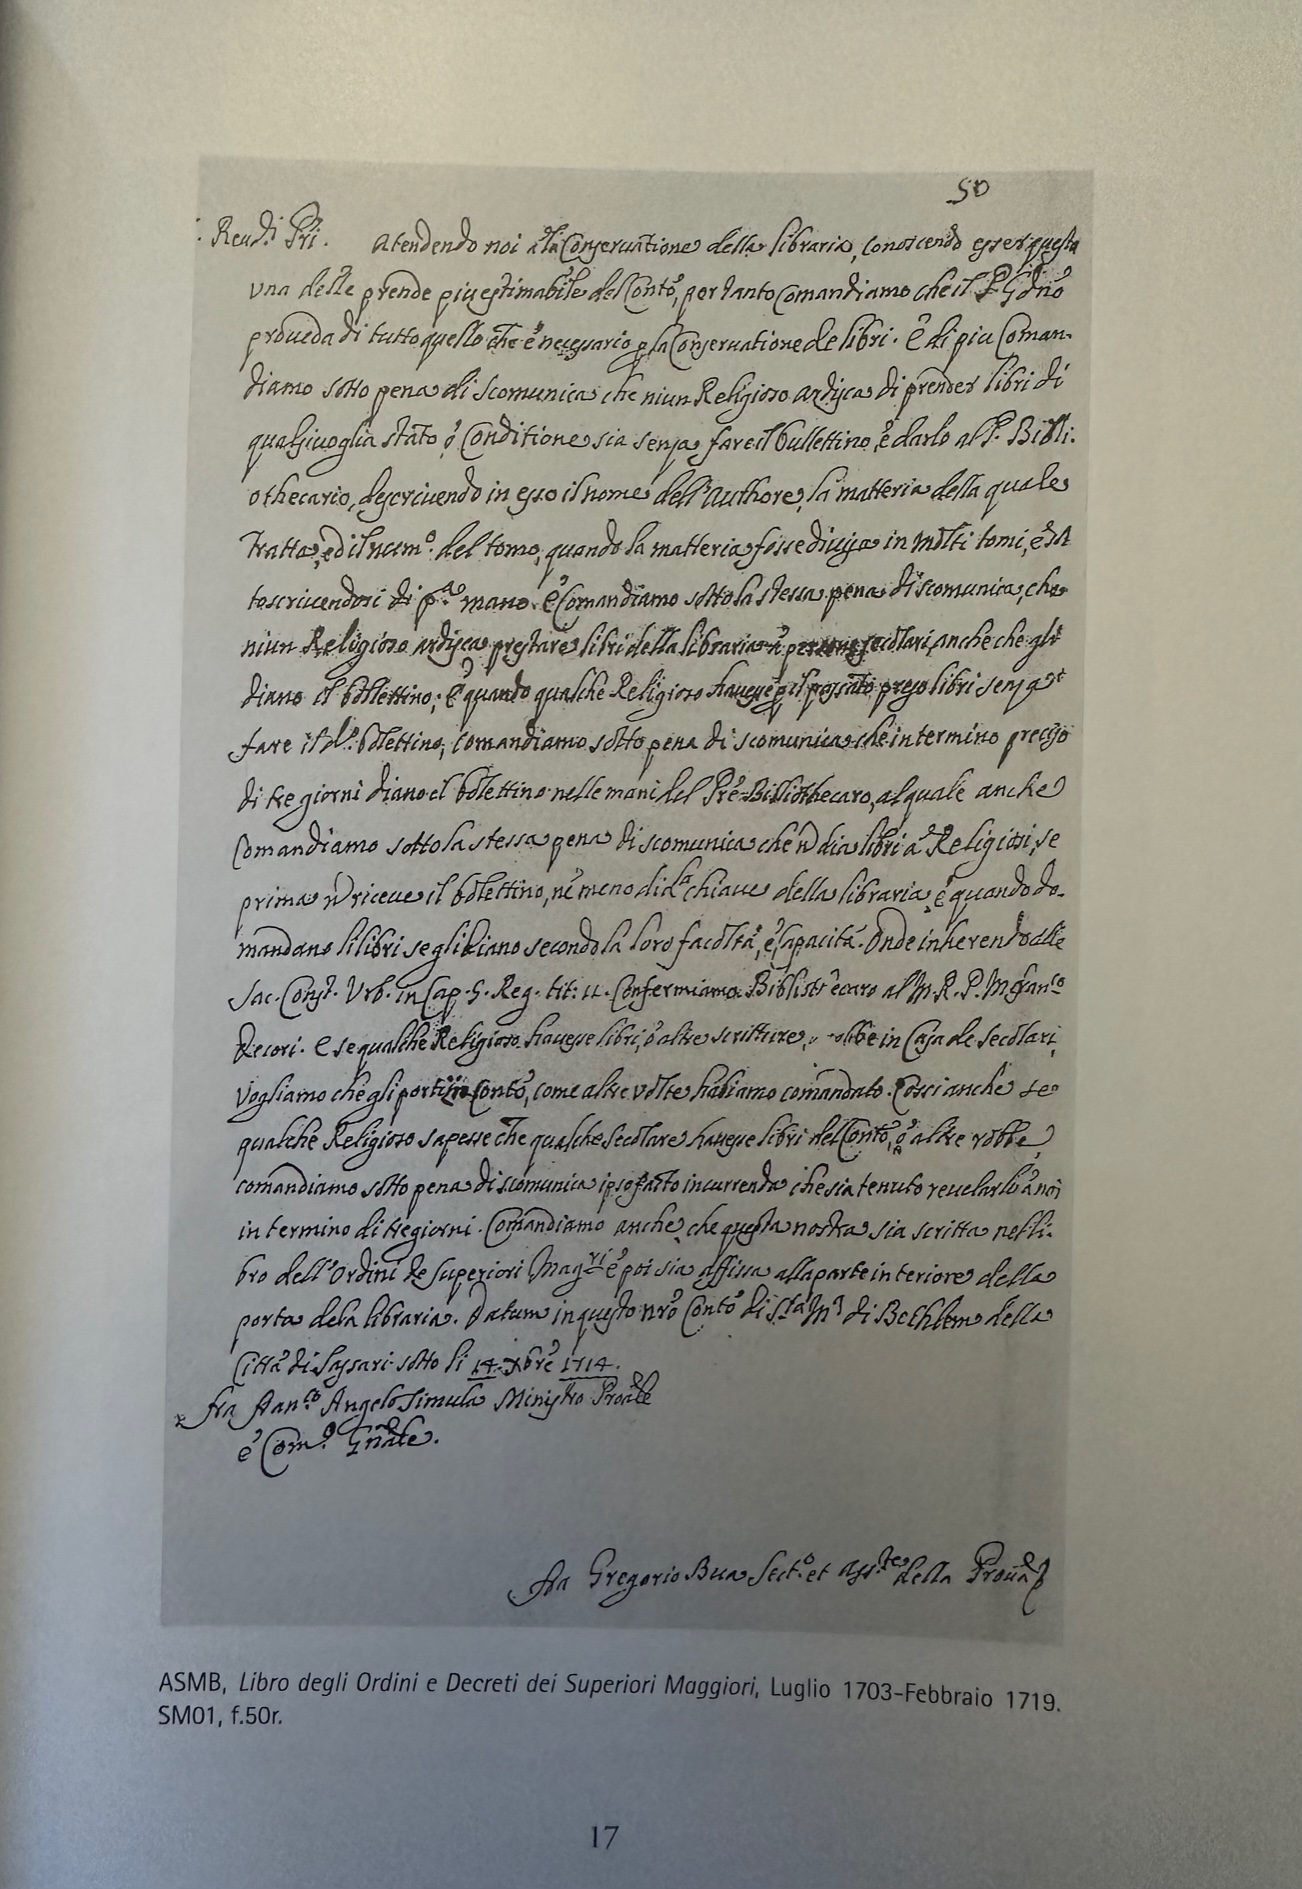 50
Reudi Pri. Atendendo noi alla Conseruatione della libraria, conoscendo esser questa
una delle prende piu estimabile del Conto, per tanto Comandiamo che il P. Gdno
proueda di tutto quello che é necessario p la Conseruatione de libri. É di piu Coman-
diamo sotto pena di scomunica che niun Religioso ardisca di prender libri di
qualsiuoglia stato ó Conditione sia senza fare il bullettino, é darlo al P. Bibli-
othecario, descriuendo in esso il nome dell'Authore, la matteria della quale
tratta, ed il num.o del tomo, quando la matteria fosse diuisa in molti tomi, é sot
toscriuendosi di p.a mano. É Comandiamo sotto la stessa pena di scomunica, che
niun Religioso ardisca prestare libri della libraria á persone secolari, anche che gli
diano il bolettino; É quando qualche Religioso hauesse p il passato preso libri senza
fare il d.o bolettino, comandiamo sotto pena di scomunica che in termino preciso
di tre giorni diano el bolettino nelle mani del Pre Bibliothecaro, al quale anche
Comandiamo sotto la stessa pena di scomunica che ñ dia libri á Religiosi, se
prima ñ riceue il bolettino, né meno di d.a chiaue della libraria, é quando do-
mandano li libri se gli diano secondo la loro facoltá, é capacitá. Onde inherendo alle
Sac. Const. Urb. in Cap. 5. Reg. tit: 11. Confermiamo Bibliothecaro al M. R. P. M fran.co
Decori. E se qualche Religioso hauesse libri, ó altre scritture, robbe in Casa de Secolari,
Vogliamo che gli porti in Conto, come altre volte habiamo comandato. Cosci anche se
qualche Religioso sapesse che qualche secolare hauesse libri del Conto, ó altre robbe,
comandiamo sotto pena di scomunica ipso facto incurrenda che sia tenuto reuelarlo á noi
in termino di tre giorni. Comandiamo anche, che questa nostra sia scritta nel li-
bro dell'Ordini de Superiori Mag.ri é poi sia affissa alla parte interiore della
porta dela libraria. Datum in questo nro Conto di S.ta M.a di Bethlem della
Cittá di Sassari sotto li 14. 7bre 1714.
fra fran.co Angelo Simula Ministro Proale
é Com.o Gnale.
fra Gregorio Bua Sect.o et Ass.te della Prouã
ASMB, Libro degli Ordini e Decreti dei Superiori Maggiori, Luglio 1703-Febbraio 1719.
SM01, f.50r.
17